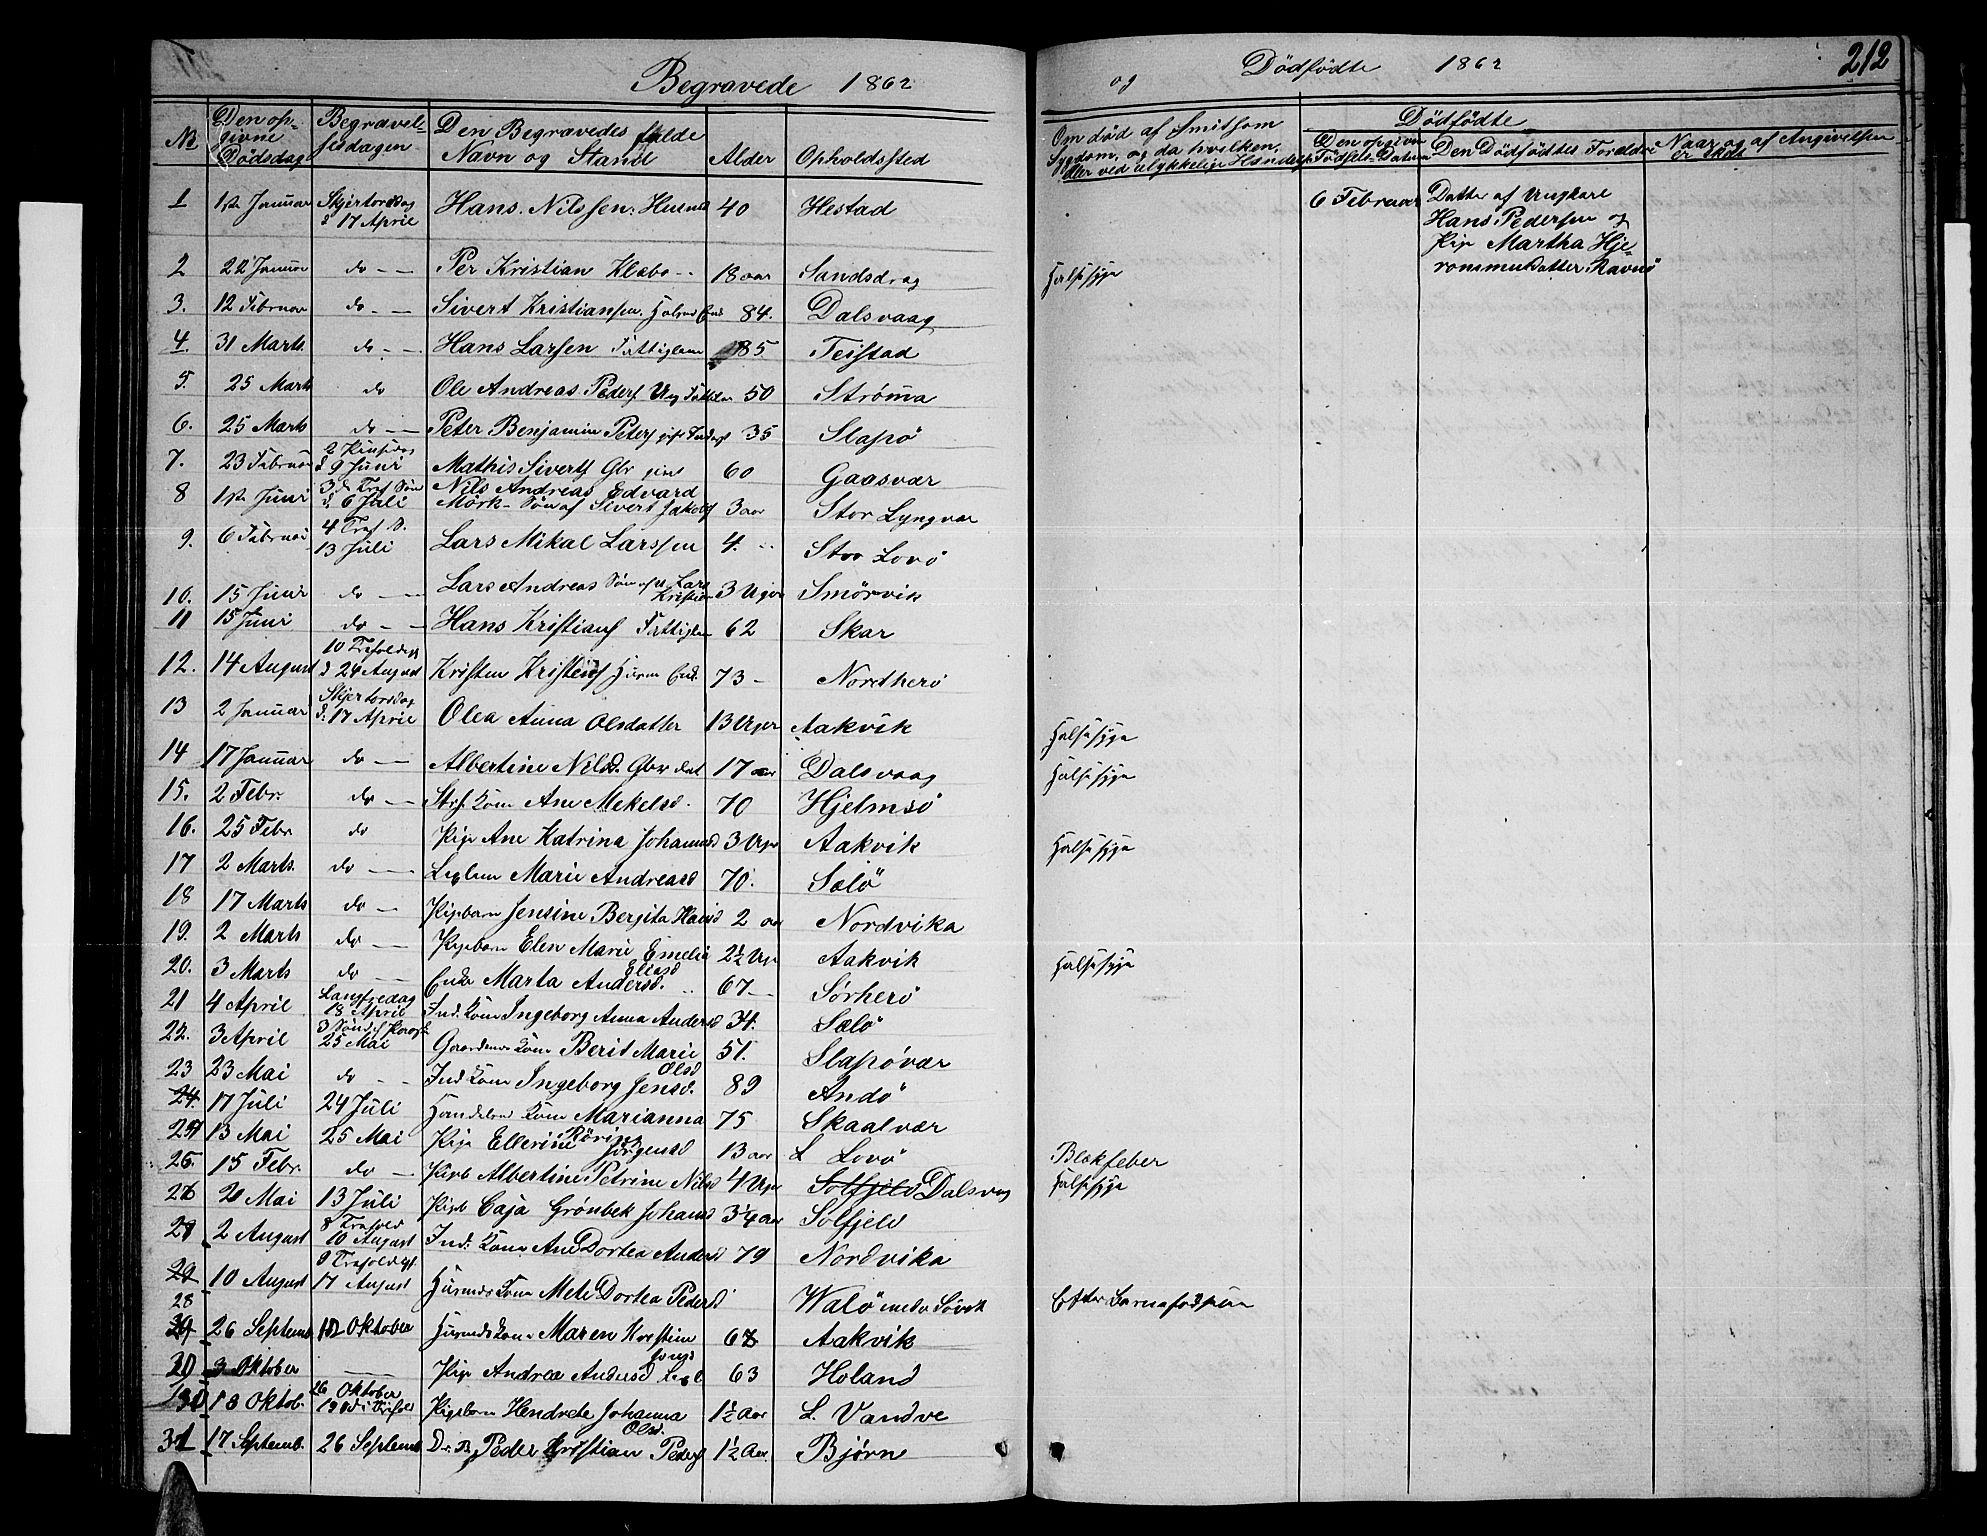 Begravede 1862
og Dödfödte 1862 212
No Den opgivne Dødsdag Begravelsesdagen Den Begravedes fulde Navn og Stand Alder Opholdssted
Om död af Smitsom Sygdom, og da hvilken, eller ved ulykkelig Hændelse
Dödfödte
Den opgivne Födsels-Datum Den Dödfödtes Forældre Naar og af Angivelsen er skedt
1 1ste Januar Skjertorsdag d 17 April Hans Nilssen Husmd 40 Hestad
6 Februar Datter af Ungkarl
Hans Pedersen og
Pige Martha Hje-
ronimusdatter Ravnö
2 22 Januar do Per Kristian Klæbo 18 aar Sandsdrag Halssyge
3. 12 Februar do Sivert Kristiansen 84. Dalsvaag
4. 31 Marts do Hans Larsen Fattiglem 85 Teistad
5. 25 Marts do Ole Andreas Peders Ung 50 Ströma
6. 25 Marts do Peter Benjamin Peters 35 Slapö
7. 23 Februar 2 Pinsedag d 9 Juni Mathis Siverts Gbr 60 Gaasvær
8 1ste Juni 3de Tref Søn d. 6 Juli Nils Andreas Edvard
Mörk Søn af Sivert Jakobs 3 aar Stor Lyngvær
9. 6 Februar 4 Tref S. 13 Juli Lars Mikal Larssen 4. Stor Lovö
10. 15 Juni do Lars Andreas Søn af Lars Kristian 3 Uger Smörvik
11 15 Juni do Hans Kristians Fattiglem 62 Skar
12. 14 August 10 Trefoldigh d 24 August Kristen Kristens 73 Nordherö
13 2 Januar Skjertorsdag d. 17 April Olea Anna Olsdatter 13 Uger Aakvik Halssyge
14 17 Januar do Albertine Nilsd. Gbr dat 17 aar Dalsvaag Halssyge
15. 2 Febr. do Kone Ane Mekelsd. 70 Hjelmsö
16. 25 Febr do Pige Ane Katrina Johannsd 3 Uger Aakvik Halssyge
17 2 Marts. do Legslem Marie Andreasd 70. Salö
18 17 Marts do Pigebarn Jensine Bergita Hansd 2 aar Nordvika
19. 2 Marts do Pigebarn Elen Marie Emelia Eliasd 2½ Uger Aakvik Halssyge
20. 3 Marts do Enke Marta Andersd. 67 Sørherö
21 4 April Langfredag 18 April Ind. Kone Ingeborg Anna Andersd 34. Salö
22. 3 April 25 Mai Gaardmds Kone Berit Marie Olsd 51. Slapövær
23 23 Mai do Ind Kone Ingeborg Jensd. 89 Andö
24. 17 Juli 24 Juli Kone Marianna Röring 75 Skaalvær
13 Mai 25 Mai Pige Ellerine Jörgensd 13 aar L Lovö Blokfeber
25. 15 Febr. do Pigeb Albertine Petrine Nilsd 4 Uger Solfjeld Dalsvag Halssyge
26 2 Mai 13 Juli Pigeb Caja Grönbek Johansd 3¼ aar Solfjeld
2 August 8 Trefold 10 August Ind. Kone Ane Dortea Andersd 79 Nordvika
28 10 August 9 Trefoldgh. 17 August Husmds Kone Mete Dortea Pedersd Walö Efter Barnefödselen
29 26 Septemb 12 Oktober Husmds Kone Maren Kirstine Jonsd 67 Aakvik
30 3 Oktober Pige Andrea Andersd 63 Holand
18 Oktob. 26 Oktober 19de Trefold Pigebarn Hendrete Johanna Olsd. 1½ Aar L. Vandve
31 17 Septemb. 26 Septemb Dr. B. Peder Kristian Peders 1½ Aar. Bjørn